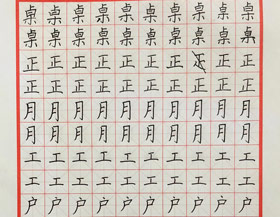 桌桌桌桌桌桌桌桌桌
桌桌桌桌桌桌桌桌桌
正正正正正正正正正
正正正正正正正正正
月月月月月月月月月
月月月月月月月月月
工工工工工工工工工
工工工工工工工工工
户户户户户户户户户